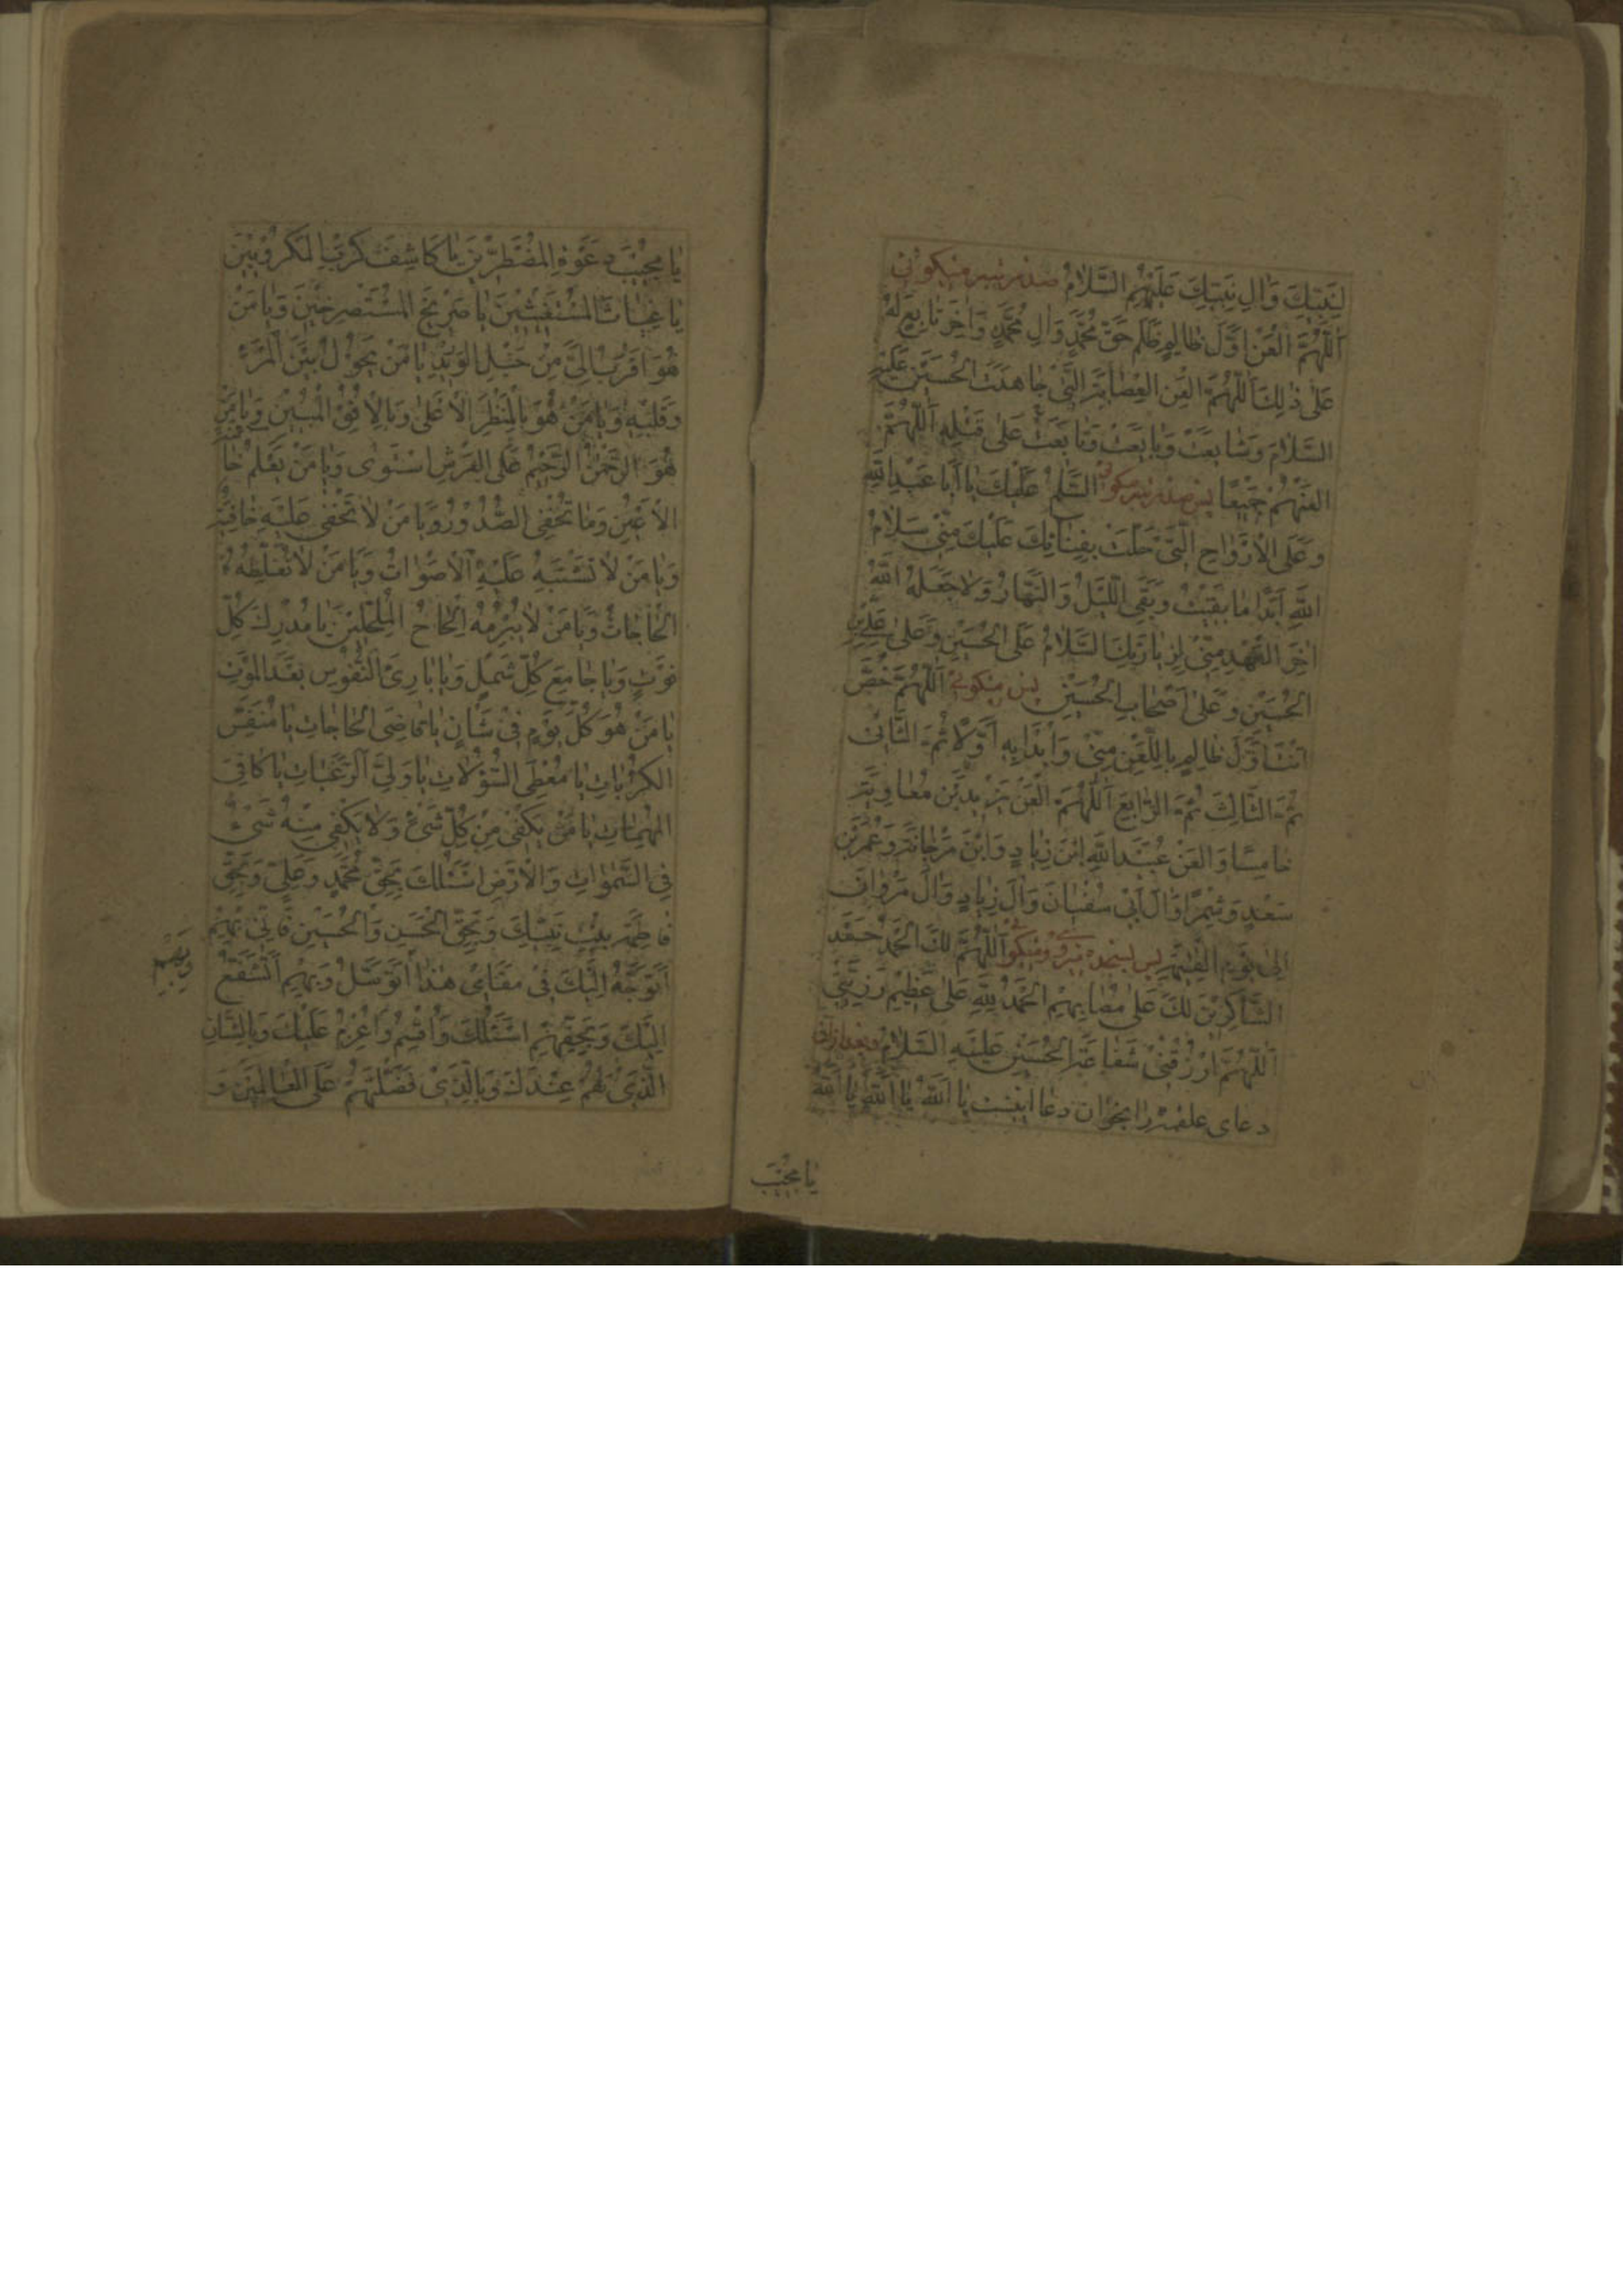 لِنَبِيِّكَ وَاٰلِ نَبِيِّكَ عَلَيْهِمُ السَّلٰامُ صد مرتبه میگوئی
اَللّٰهُمَّ الْعَنْ اَوَّلَ ظٰالِمٍ ظَلَمَ حَقَّ مُحَمَّدٍ وَاٰلِ مُحَمَّدٍ وَاٰخِرَ تٰابِعٍ لَهُ
عَلٰى ذٰلِكَ اَللّٰهُمَّ الْعَنِ الْعِصٰابَةَ الَّتِىْ جٰاهَدَتِ الْحُسَيْنَ عَلَيْهِ
السَّلٰامَ وَشٰايَعَتْ وَبٰايَعَتْ وَتٰابَعَتْ عَلٰى قَتْلِهِ اَللّٰهُمَّ
الْعَنْهُمْ جَمِيْعًا پس صد مرتبه میگوئی السَّلٰمُ عَلَيْكَ يٰا اَبٰا عَبْدِ اللّٰهِ
وَعَلَى الْاَرْوٰاحِ الَّتِىْ حَلَّتْ بِفِنٰائِكَ عَلَيْكَ مِنِّىْ سَلٰامُ
اللّٰهِ اَبَدًا مٰا بَقِيْتُ وَبَقِىَ اللَّيْلُ وَالنَّهٰارُ وَلٰا جَعَلَهُ اللّٰهُ
اٰخِرَ الْعَهْدِ مِنِّىْ لِزِيٰارَتِكَ السَّلٰامُ عَلَى الْحُسَيْنِ وَعَلٰى عَلِىِّ بْنِ
الْحُسَيْنِ وَعَلٰى اَصْحٰابِ الْحُسَيْنِ پس میگوئی اَللّٰهُمَّ خُصَّ
اَنْتَ اَوَّلَ ظٰالِمٍ بِاللَّعْنِ مِنِّىْ وَابْدَا بِهِ اَوَّلًا ثُمَّ الثَّانِىَ
ثُمَّ الثَّالِثَ ثُمَّ الرّٰابِعَ اَللّٰهُمَّ الْعَنْ يَزِيْدَ بْنَ مُعٰاوِيَةَ
خٰامِسًا وَالْعَنْ عُبَيْدَ اللّٰهِ ابْنَ زِيٰادٍ وَابْنَ مَرْجٰانَةَ وَعُمَرَ بْنَ
سَعْدٍ وَشِمْرًا وَاٰلَ اَبِىْ سُفْيٰانَ وَاٰلَ زِيٰادٍ وَاٰلَ مَرْوٰانَ
اِلٰى يَوْمِ الْقِيٰمَةِ پس بسجده میروی و میگوئی اَللّٰهُمَّ لَكَ الْحَمْدُ حَمْدَ
الشّٰاكِرِيْنَ لَكَ عَلٰى مُصٰابِهِمْ الْحَمْدُ لِلّٰهِ عَلٰى عَظِيْمِ رَزِيَّتِىْ
اَللّٰهُمَّ ارْزُقْنِىْ شَفٰاعَةَ الْحُسَيْنِ عَلَيْهِ السَّلٰامُ و بعد ازان
دعای علقمه را بخوان دعا اینست يٰا اَللّٰهُ يٰا اَللّٰهُ يٰا اَللّٰهُ
يٰا مُجِيْبَ
يٰا مُجِيْبَ دَعْوَةِ الْمُضْطَرِّيْنَ يٰا كٰاشِفَ كُرَبِ الْمَكْرُوْبِيْنَ
يٰا غِيٰاثَ الْمُسْتَغِيْثِيْنَ يٰا صَرِيْخَ الْمُسْتَصْرِخِيْنَ وَيٰا مَنْ
هُوَ اَقْرَبُ اِلَىَّ مِنْ حَبْلِ الْوَرِيْدِ يٰا مَنْ يَحُوْلُ بَيْنَ الْمَرْءِ
وَقَلْبِهِ وَيٰا مَنْ هُوَ بِالْمَنْظَرِ الْاَعْلٰى وَبِالْاُفُقِ الْمُبِيْنِ وَيٰا مَنْ
هُوَ الرَّحْمٰنُ الرَّحِيْمُ عَلَى الْعَرْشِ اسْتَوٰى وَيٰا مَنْ يَعْلَمُ خٰائِنَةَ
الْاَعْيُنِ وَمٰا تُخْفِى الصُّدُوْرُ وَيٰا مَنْ لٰا تَخْفٰى عَلَيْهِ خٰافِيَةٌ
وَيٰا مَنْ لٰا تَشْتَبِهُ عَلَيْهِ الْاَصْوٰاتُ وَيٰا مَنْ لٰا تُغَلِّطُهُ
الْحٰاجٰاتُ وَيٰا مَنْ لٰا يُبْرِمُهُ اِلْحٰاحُ الْمُلِحِّيْنَ يٰا مُدْرِكَ كُلِّ
فَوْتٍ وَيٰا جٰامِعَ كُلِّ شَمْلٍ وَيٰا بٰارِئَ النُّفُوْسِ بَعْدَ الْمَوْتِ
يٰا مَنْ هُوَ كُلَّ يَوْمٍ فِىْ شَأْنٍ يٰا قٰاضِىَ الْحٰاجٰاتِ يٰا مُنَفِّسَ
الْكُرُبٰاتِ يٰا مُعْطِىَ السُّؤْلٰاتِ يٰا وَلِىَّ الرَّغَبٰاتِ يٰا كٰافِىَ
الْمُهِمّٰاتِ يٰا مَنْ يَكْفِىْ مِنْ كُلِّ شَىْءٍ وَلٰا يَكْفِىْ مِنْهُ شَىْءٌ
فِى السَّمٰوٰاتِ وَالْاَرْضِ اَسْئَلُكَ بِحَقِّ مُحَمَّدٍ وَعَلِىٍّ وَبِحَقِّ
فٰاطِمَةَ بِنْتِ نَبِيِّكَ وَبِحَقِّ الْحَسَنِ وَالْحُسَيْنِ فَاِنِّىْ بِهِمْ
اَتَوَجَّهُ اِلَيْكَ فِىْ مَقٰامِىْ هٰذٰا اَتَوَسَّلُ وَبِهِمْ اَتَشَفَّعُ
وَبِهِمْ
اِلَيْكَ وَبِحَقِّهِمْ اَسْئَلُكَ وَاُقْسِمُ وَاَعْزِمُ عَلَيْكَ وَبِالشَّانِ
الَّذِىْ لَهُمْ عِنْدَكَ وَبِالَّذِىْ فَضَّلْتَهُمْ عَلَى الْعٰالَمِيْنَ وَ